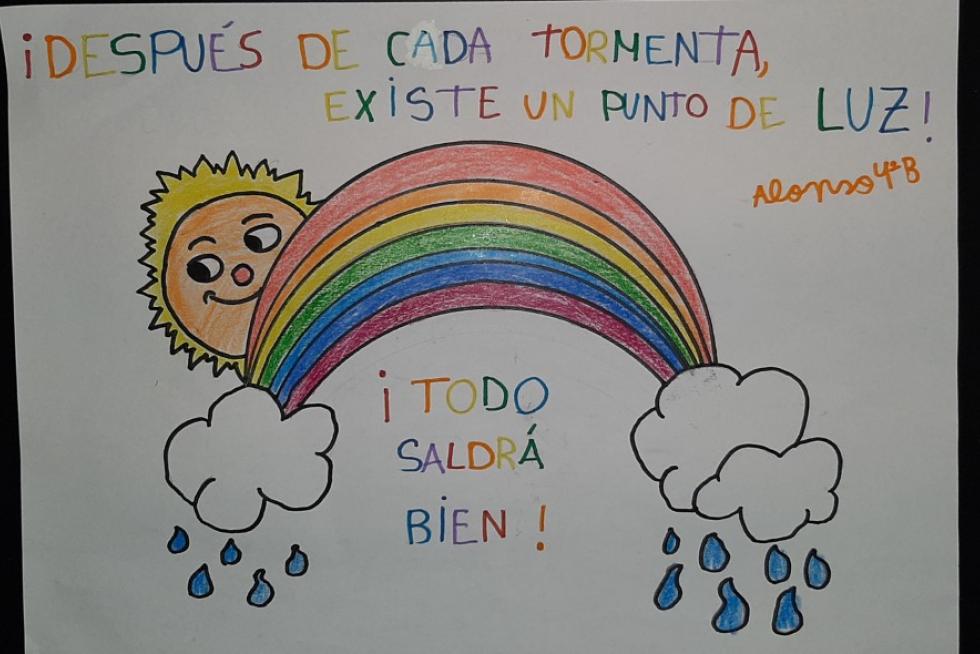 ¡DESPUÉS DE CADA TORMENTA,
EXISTE UN PUNTO DE LUZ!
Alonso 4ºB
¡TODO
SALDRÁ
BIEN!